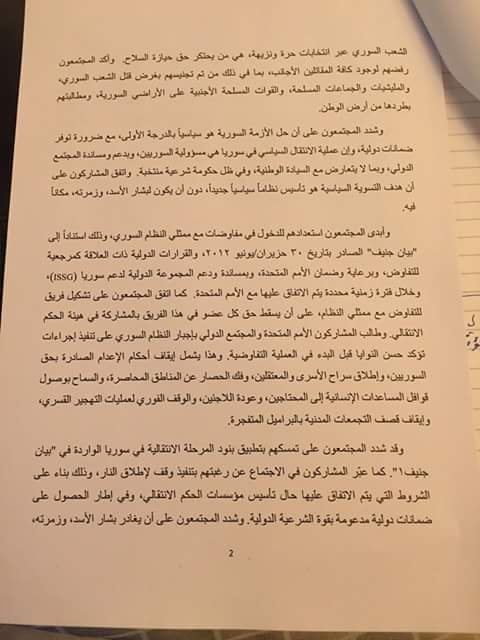 الشعب السوري عبر انتخابات حرة ونزيهة، هي من يحتكر حق حيازة السلاح. وأكد المجتمعون
رفضهم لوجود كافة المقاتلين الأجانب، بما في ذلك من تم تجنيسهم بغرض قتل الشعب السوري،
والمليشيات والجماعات المسلحة، والقوات المسلحة الأجنبية على الأراضي السورية، ومطالبتهم
بطردها من أرض الوطن.
وشدد المجتمعون على أن حل الأزمة السورية هو سياسياً بالدرجة الأولى، مع ضرورة توفر
ضمانات دولية، وإن عملية الانتقال السياسي في سوريا هي مسؤولية السوريين، وبدعم ومساندة المجتمع
الدولي، وبما لا يتعارض مع السيادة الوطنية، وفي ظل حكومة شرعية منتخبة. واتفق المشاركون على
أن هدف التسوية السياسية هو تأسيس نظاماً سياسياً جديداً، دون أن يكون لبشار الأسد، وزمرته، مكاناً
فيه.
وأبدى المجتمعون استعدادهم للدخول في مفاوضات مع ممثلي النظام السوري، وذلك استناداً إلى
"بيان جنيف" الصادر بتاريخ ٣٠ حزيران/يونيو ٢٠١٢، والقرارات الدولية ذات العلاقة كمرجعية
للتفاوض، وبرعاية وضمان الأمم المتحدة، وبمساندة ودعم المجموعة الدولية لدعم سوريا (ISSG)،
وخلال فترة زمنية محددة يتم الاتفاق عليها مع الأمم المتحدة. كما اتفق المجتمعون على تشكيل فريق
للتفاوض مع ممثلي النظام، على أن يسقط حق كل عضو في هذا الفريق بالمشاركة في هيئة الحكم
الانتقالي. وطالب المشاركون الأمم المتحدة والمجتمع الدولي بإجبار النظام السوري على تنفيذ إجراءات
تؤكد حسن النوايا قبل البدء في العملية التفاوضية. وهذا يشمل إيقاف أحكام الإعدام الصادرة بحق
السوريين، وإطلاق سراح الأسرى والمعتقلين، وفك الحصار عن المناطق المحاصرة، والسماح بوصول
قوافل المساعدات الإنسانية إلى المحتاجين، وعودة اللاجئين، والوقف الفوري لعمليات التهجير القسري،
وإيقاف قصف التجمعات المدنية بالبراميل المتفجرة.
وقد شدد المجتمعون على تمسكهم بتطبيق بنود المرحلة الانتقالية في سوريا الواردة في "بيان
جنيف١". كما عبّر المشاركون في الاجتماع عن رغبتهم بتنفيذ وقف لإطلاق النار، وذلك بناء على
الشروط التي يتم الاتفاق عليها حال تأسيس مؤسسات الحكم الانتقالي، وفي إطار الحصول على
ضمانات دولية مدعومة بقوة الشرعية الدولية. وشدد المجتمعون على أن يغادر بشار الأسد، وزمرته،
2